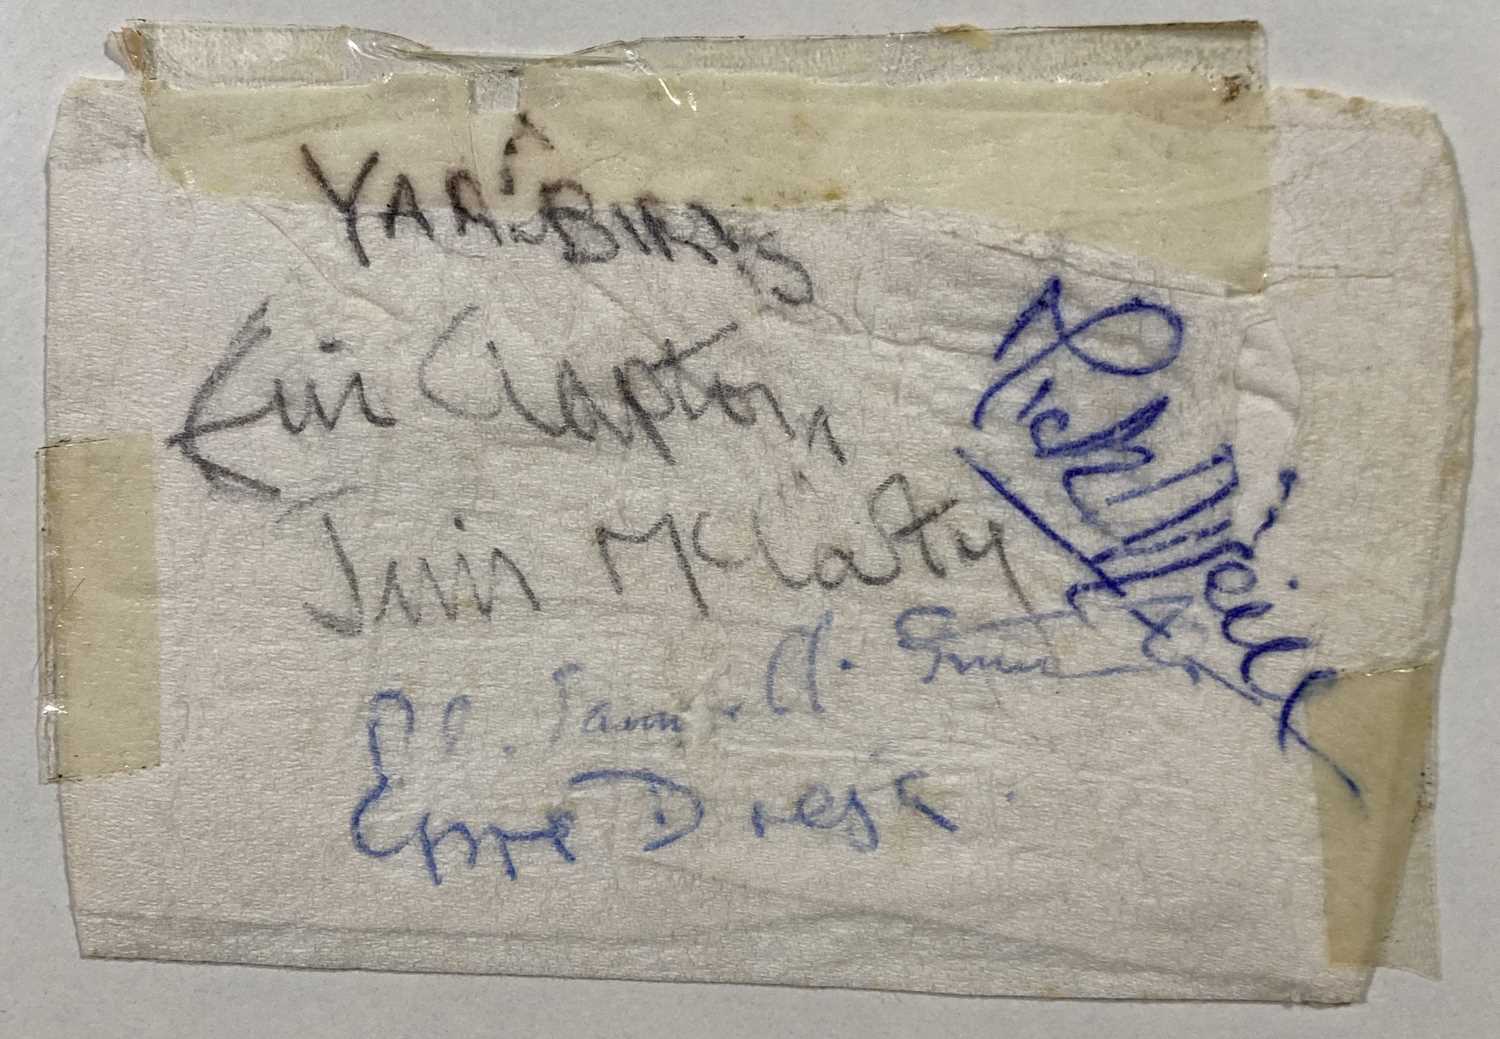 YARDBIRDS
Eric Clapton
Jim McCarty
Mick O'Neill
P. Samwell. Smith
Chris Dreja.